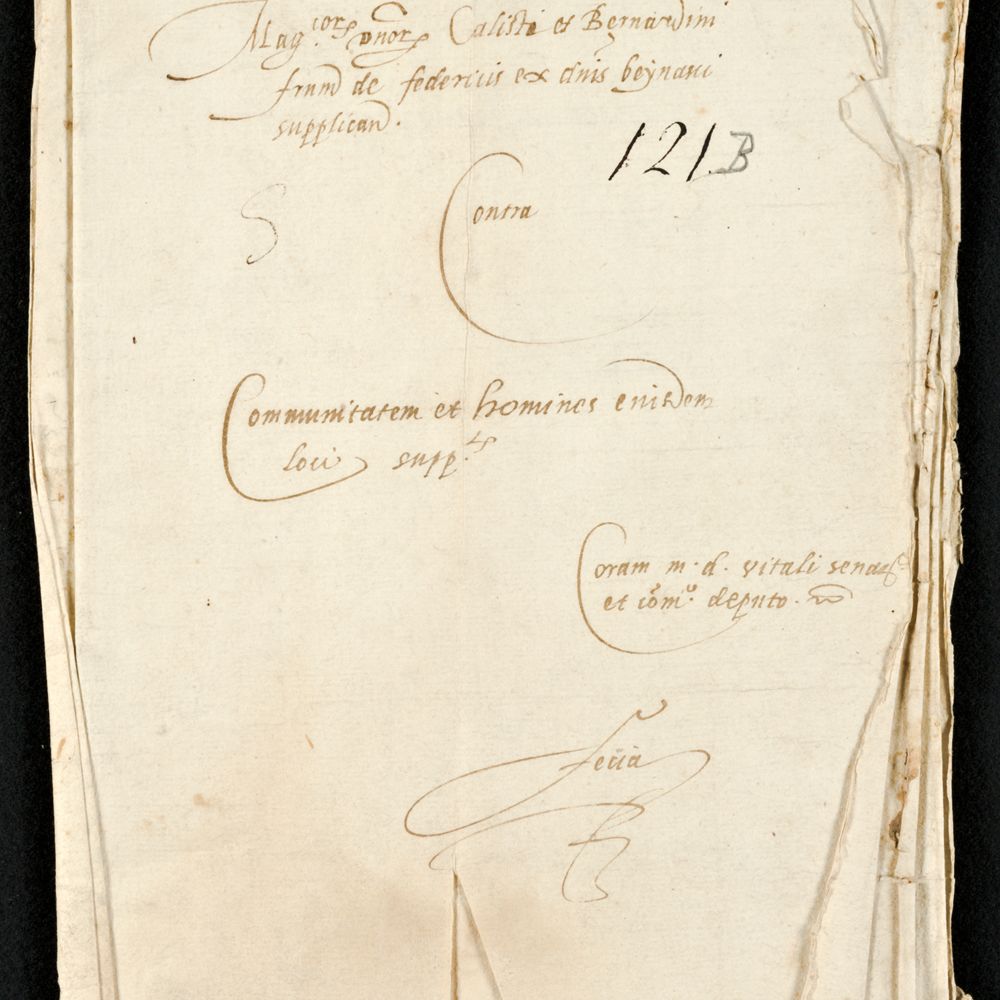 Mag.corꝝ dnorꝝ Calisti et Bernardini
frum de federicis ex dnis beynaui
supplican.
121 B
Contra
Communitatem et homines eiusdem
loci supp.ts
Coram m. d. vitali
et com.o deputo.
fecia